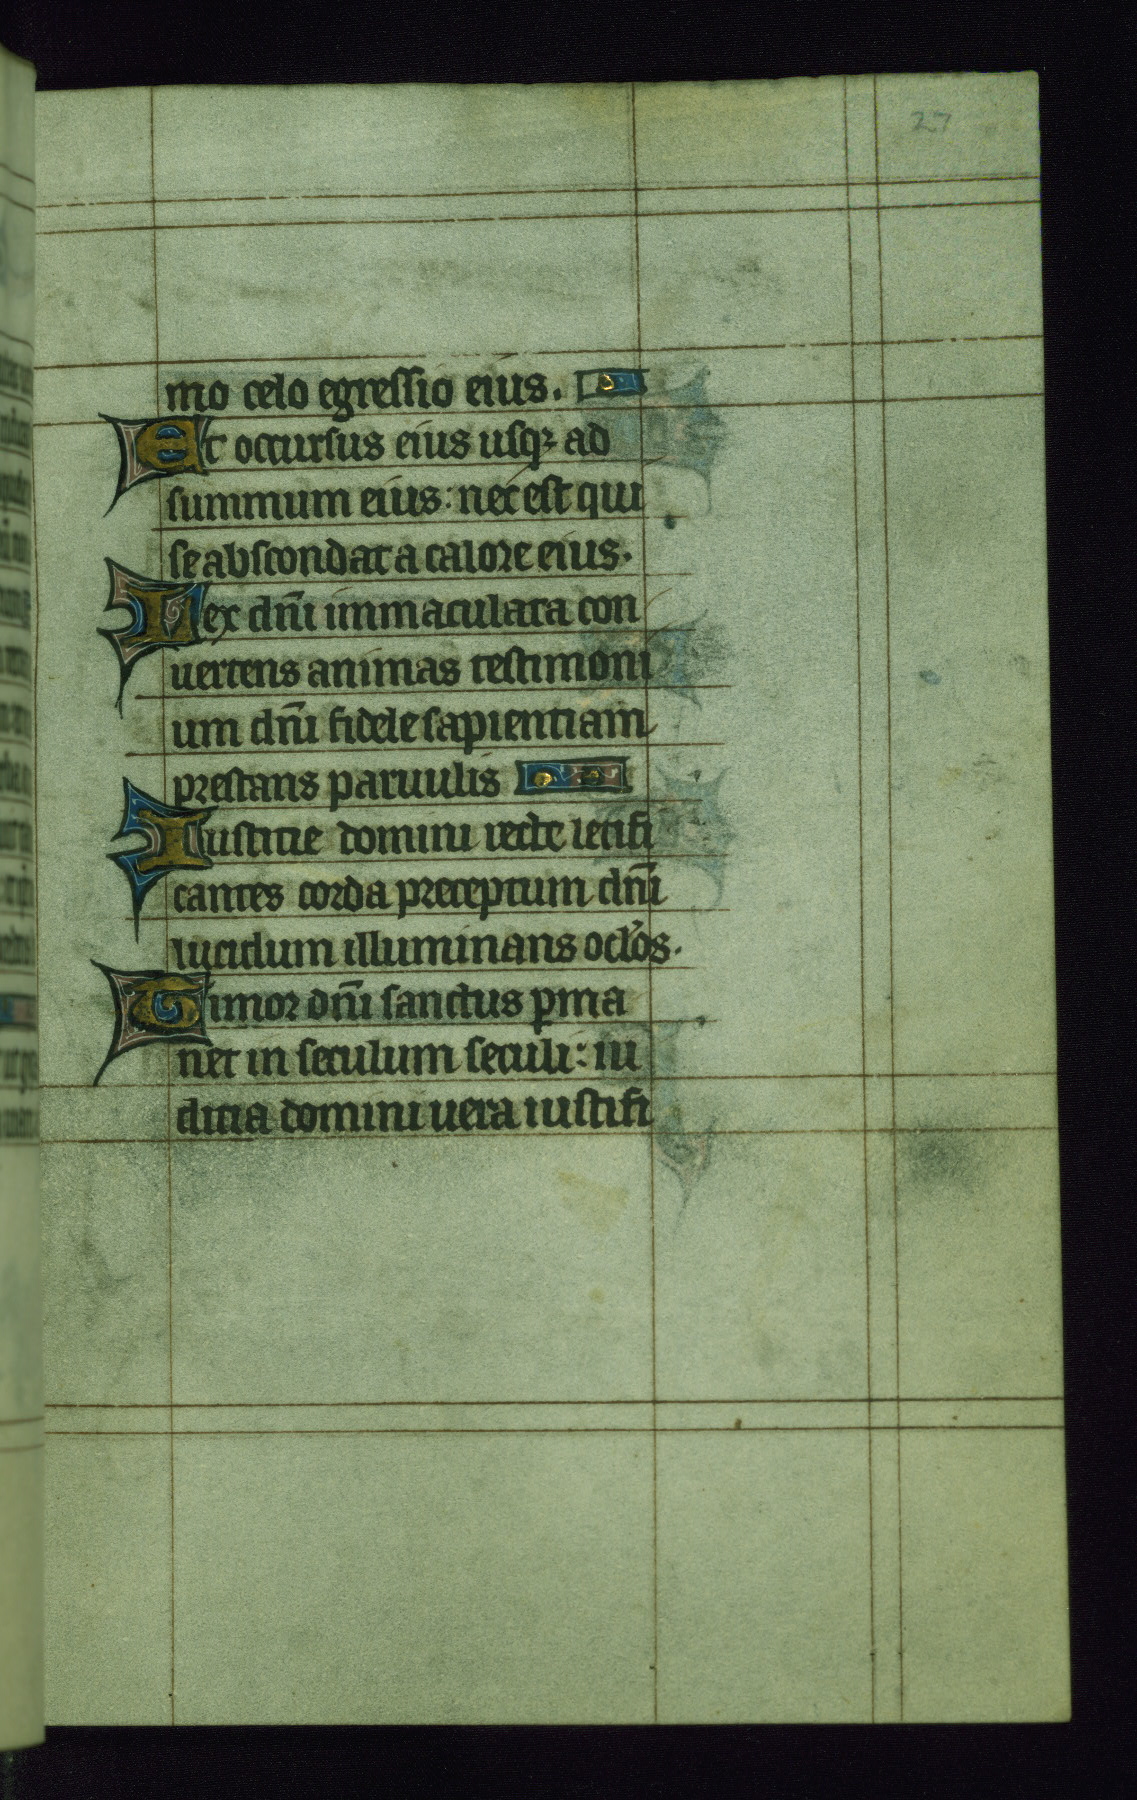 27
mo celo egressio eius.
Et occursus eius usqꝫ ad
summum eius: nec est qui
se abscondat a calore eius.
Lex dñi immaculata con
uertens animas testimoni
um dñi fidele sapientiam
prestans paruulis
Iusticie domini recte letifi
cantes corda preceptum dñi
lucidum illuminans oc̓los.
Timor dñi sanctus ꝑma
net in seculum seculi: iu
dicia domini uera iustifi